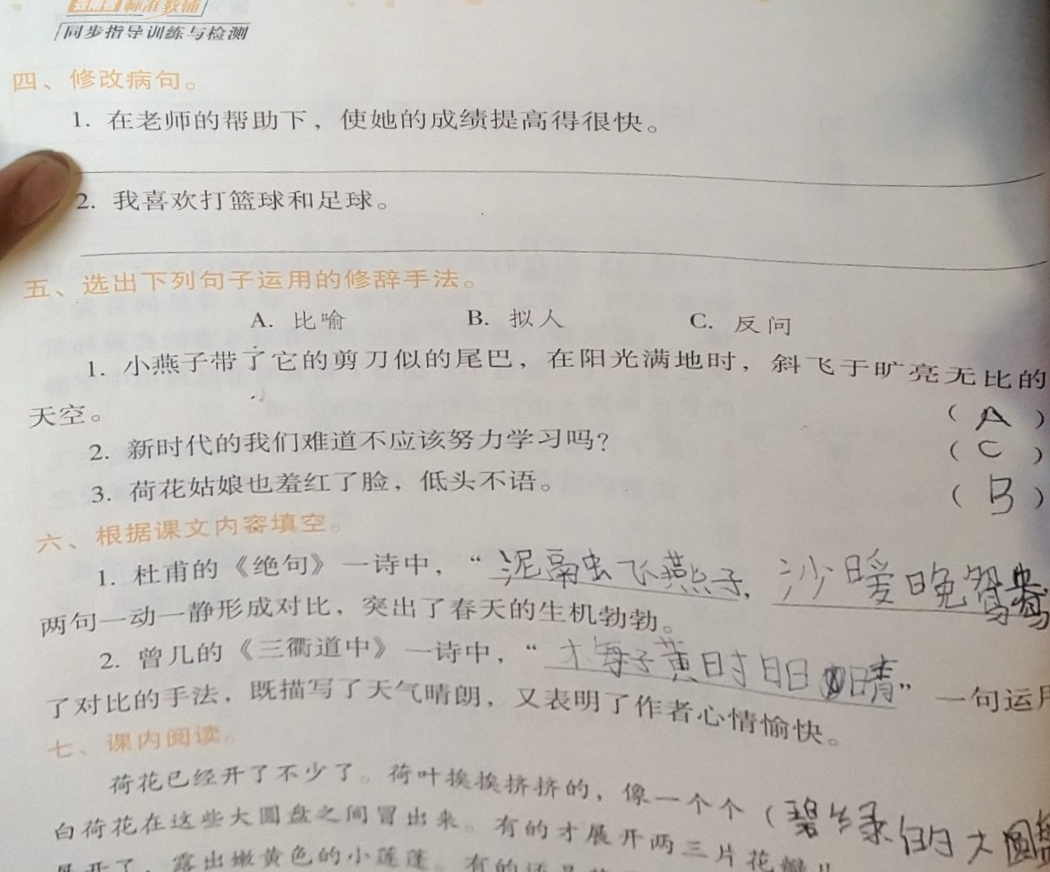 标准教辅
同步指导训练与检测
四、修改病句。
1. 在老师的帮助下，使她的成绩提高得很快。
2. 我喜欢打篮球和足球。
五、选出下列句子运用的修辞手法。
A. 比喻 B. 拟人 C. 反问
1. 小燕子带了它的剪刀似的尾巴，在阳光满地时，斜飞于旷亮无比的
天空。 （ A ）
2. 新时代的我们难道不应该努力学习吗？ （ C ）
3. 荷花姑娘也羞红了脸，低头不语。 （ B ）
六、根据课文内容填空。
1. 杜甫的《绝句》一诗中，“泥融飞燕子，沙暖晚鸳鸯
两句一动一静形成对比，突出了春天的生机勃勃。
2. 曾几的《三衢道中》一诗中，“木每子黄日寸日日晴” 一句运用
了对比的手法，既描写了天气晴朗，又表明了作者心情愉快。
七、课内阅读。
荷花已经开了不少了。荷叶挨挨挤挤的，像一个个（碧绿的大圆盘
白荷花在这些大圆盘之间冒出来。有的才展开两三片花瓣儿
展开了，露出嫩黄色的小莲蓬。有的还是